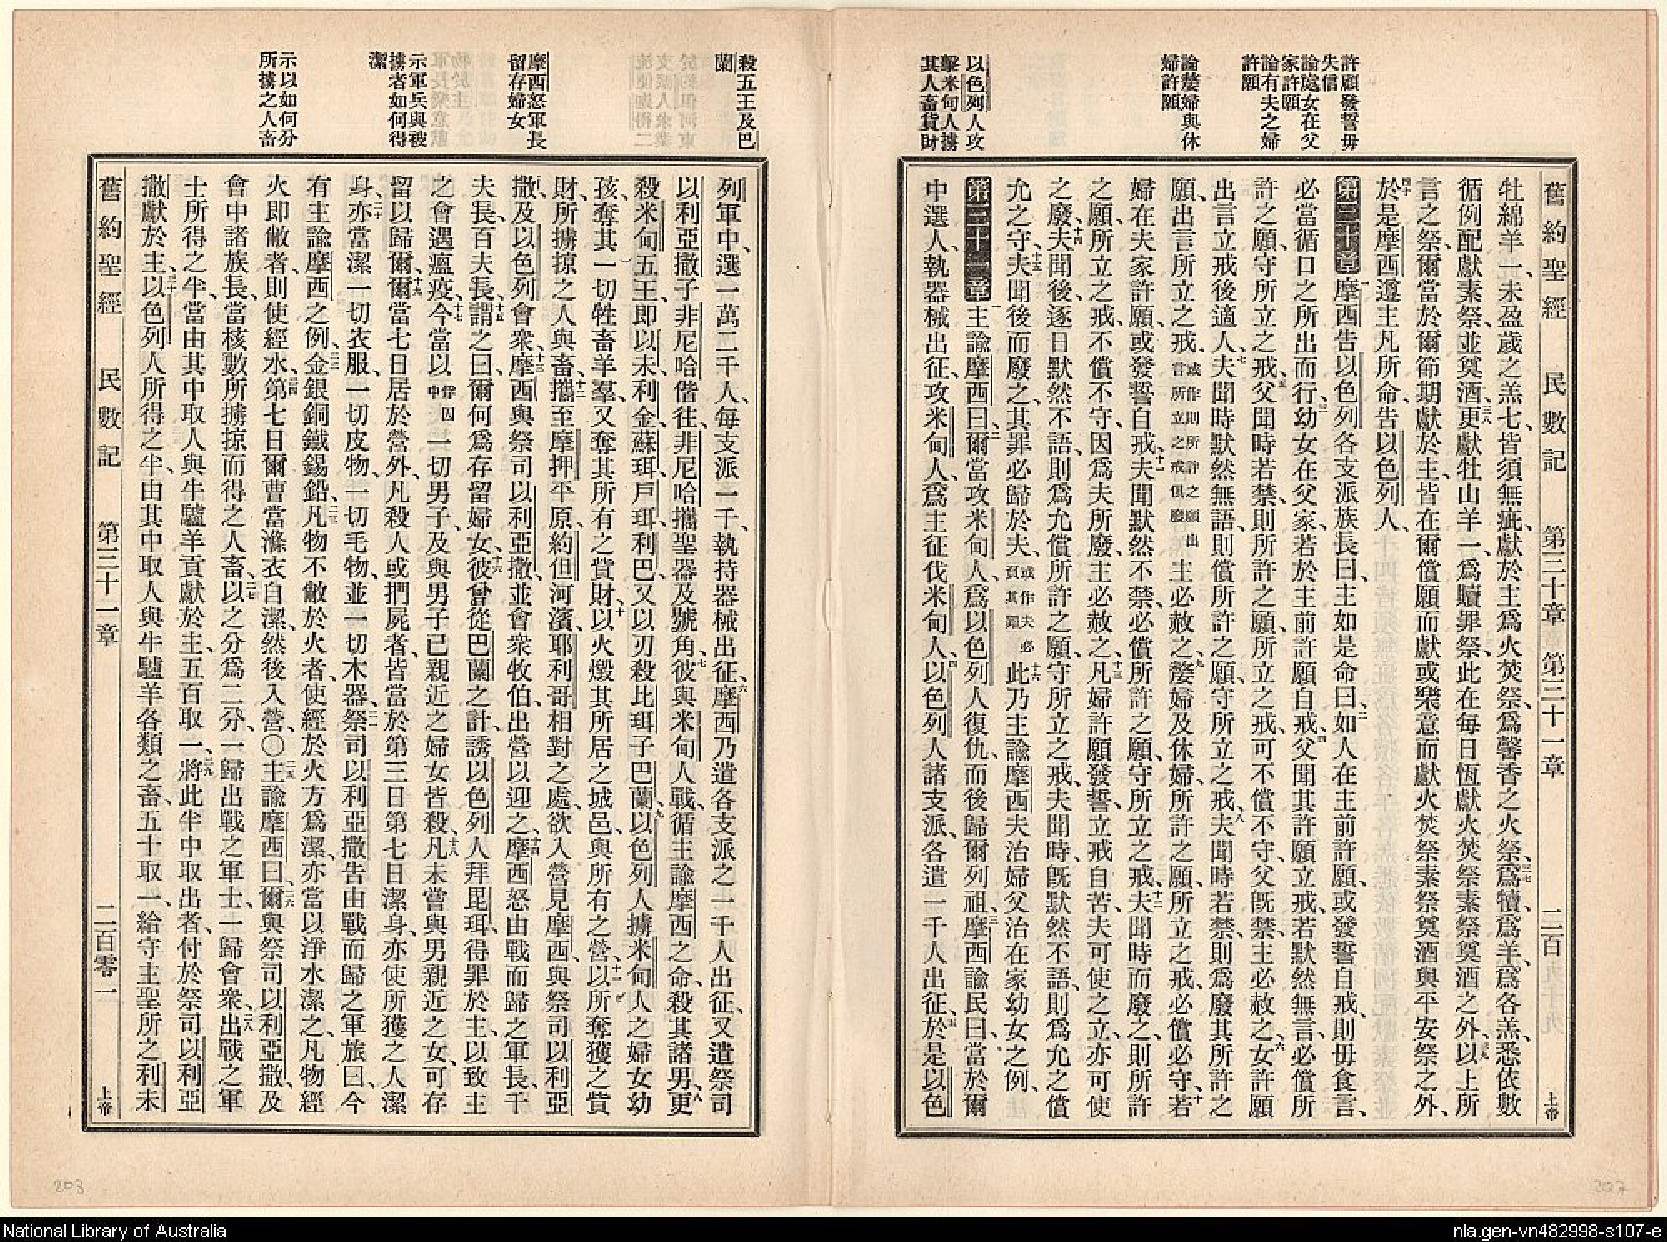 許願發誓毋
失信
論處女在父
家許願
論有夫之婦
許願
論嫠婦與休
婦許願
以色列人攻
擊米甸人擄
其人畜貨財
舊約聖經 民數記 第三十章 第三十一章 二百 上帝
牡綿羊一、未盈歲之羔七、皆須無疵、獻於主爲火焚祭、爲馨香之火祭、三七爲犢爲羊、爲各羔、悉依數
循例配獻素祭、並奠酒、三八更獻牡山羊一、爲贖罪祭、此在每日恆獻火焚祭素祭奠酒之外、三九以上所
言之祭、爾當於爾節期獻於主、皆在爾償願而獻、或樂意而獻火焚祭素祭奠酒與平安祭之外、
四十於是摩西遵主凡所命、告以色列人、
第三十章 一摩西告以色列各支派族長曰、主如是命曰、二如人在主前許願、或發誓自戒、則毋食言、
必當循口之所出而行、三幼女在父家、若於主前許願自戒、四父聞其許願立戒、若默然無言、必償所
許之願、守所立之戒、五父聞時若禁、則所許之願、所立之戒、可不償不守、父既禁、主必赦之、六女許願
出言立戒後適人、七夫聞時默然無語、則償所許之願、守所立之戒、八夫聞時若禁、則爲廢其所許之
願、出言所立之戒、或作則所許之願出言所立之戒俱廢主必赦之、九嫠婦及休婦、所許之願、所立之戒、必償必守、十若
婦在夫家許願、或發誓自戒、十一夫聞默然不禁、必償所許之願、守所立之戒、十二夫聞時而廢之、則所許
之願、所立之戒、不償不守、因爲夫所廢、主必赦之、十三凡婦許願發誓、立戒自苦、夫可使之立、亦可使
之廢、十四夫聞後、逐日默然不語、則爲允償所許之願、守所立之戒、夫聞時、既默然不語、則爲允之償
允之守、十五夫聞後而廢之、其罪必歸於夫、或作夫必負其罪此乃十六主諭摩西夫治婦父治在家幼女之例、
第三十一章 一主諭摩西曰、二爾當攻米甸人、爲以色列人復仇、而後歸爾列祖、三摩西諭民曰、當於爾
中選人、執器械出征、攻米甸人、爲主征伐米甸人、四以色列人諸支派、各遣一千人出征、五於是以色
上帝
殺五王及巴
蘭
摩西怒軍長
留存婦女
示軍兵與被
擄者如何得
潔
示以如何分
所擄之人畜
列軍中、選一萬二千人、每支派一千、執持器械出征、六摩西乃遣各支派之一千人出征、又遣祭司
以利亞撒子非尼哈偕往、非尼哈攜聖器及號角、七彼與米甸人戰、循主諭摩西之命、殺其諸男、八更
殺米甸五王、即以未利金蘇珥戶珥利巴、又以刃殺比珥子巴蘭、九以色列人擄米甸人之婦女幼
孩、奪其一切牲畜羊羣、又奪其所有之貲財、十以火燬其所居之城邑、與所有之營、十一以所奪獲之貲
財、所擄掠之人與畜、十二攜至摩押平原、約但河濱、耶利哥相對之處、欲入營見摩西、與祭司以利亞
撒、及以色列會衆、十三摩西與祭司以利亞撒、並會衆牧伯、出營以迎之、十四摩西怒由戰而歸之軍長、千
夫長、百夫長、十五謂之曰、爾何爲存留婦女、十六彼曾從巴蘭之計、誘以色列人拜毘珥、得罪於主、以致主
之會遇瘟疫、十七今當以俘囚中一切男子、及與男子已親近之婦女皆殺、十八凡未嘗與男親近之女、可存
留以歸爾、十九爾當七日居於營外、凡殺人或捫屍者、皆當於第三日第七日潔身、亦使所獲之人潔
身、二十亦當潔一切衣服、一切皮物、一切毛物、並一切木器、二一祭司以利亞撒告由戰而歸之軍旅曰、今
有主諭摩西之例、二二金銀銅鐵錫鉛、二三凡物不敝於火者、使經於火方爲潔、亦當以淨水潔之、凡物經
火即敝者、則使經水、二四第七日爾曹當滌衣自潔、然後入營、〇二五主諭摩西曰、二六爾與祭司以利亞撒、及
會中諸族長、當核數所擄掠而得之人畜、二七以之分爲二分、一歸出戰之軍士、一歸會衆、二八出戰之軍
士所得之半、當由其中取人與牛驢羊貢獻於主、五百取一、二九將此半中取出者、付於祭司以利亞
撒、獻於主、三十以色列人所得之半、由其中取人與牛驢羊各類之畜、五十取一、給守主聖所之利未
舊約聖經 民數記 第三十一章 二百零一 上帝
203
207
National Library of Australia
nla.gen-vn482998-s107-e